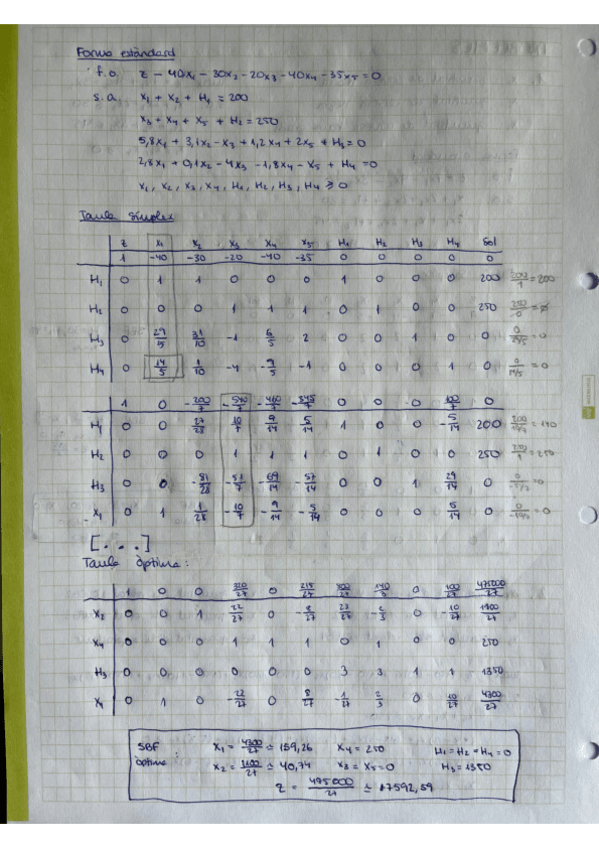 Forma estàndard
f.o. z - 40x₁ - 30x₂ - 20x₃ - 40x₄ - 35x₅ = 0
s.a x₁ + x₂ + H₁ = 200
x₃ + x₄ + x₅ + H₂ = 250
5,8x₁ + 3,1x₂ - x₃ + 1,2x₄ + 2x₅ + H₃ = 0
2,8x₁ + 0,1x₂ - 4x₃ - 1,8x₄ - x₅ + H₄ = 0
x₁, x₂, x₃, x₄, H₁, H₂, H₃, H₄ ≥ 0
Taula Simplex
z x₁ x₂ x₃ x₄ x₅ H₁ H₂ H₃ H₄ Sol
1 -40 -30 -20 -40 -35 0 0 0 0 0
H₁ 0 1 1 0 0 0 1 0 0 0 200 200/1 = 200
H₂ 0 0 0 1 1 1 0 1 0 0 250 250/0 = ∅
H₃ 0 29/5 31/10 -1 6/5 2 0 0 1 0 0 0/29/5 = 0
H₄ 0 14/5 1/10 -4 -9/5 -1 0 0 0 1 0 0/14/5 = 0
1 0 -200/7 -540/7 -460/7 -345/7 0 0 0 100/7 0
H₁ 0 0 27/28 10/7 9/14 5/14 1 0 0 -5/14 200 200/10/7 = 140
H₂ 0 0 0 1 1 1 0 1 0 0 250 250/1 = 250
H₃ 0 0 -81/28 -51/7 -69/14 -57/14 0 0 1 29/14 0 = 0
X₁ 0 1 1/28 -10/7 -9/14 -5/14 0 0 0 5/14 0 0/-10/7 = 0
[...]
Taula Òptima:
1 0 0 320/27 0 215/27 800/27 140/3 0 100/27 475000/27
X₂ 0 0 1 22/27 0 -8/27 28/27 -2/3 0 -10/27 1100/27
X₄ 0 0 0 1 1 1 0 1 0 0 250
H₃ 0 0 0 0 0 0 3 3 1 1 1350
X₁ 0 1 0 -22/27 0 8/27 -1/27 2/3 0 10/27 4300/27
SBF òptima: X₁ = 4300/27 ≃ 159,26 X₄ = 250 H₁ = H₂ = H₄ = 0
X₂ = 1100/27 ≃ 40,74 X₃ = X₅ = 0 H₃ = 1350
z = 475000/27 ≃ 17592,59